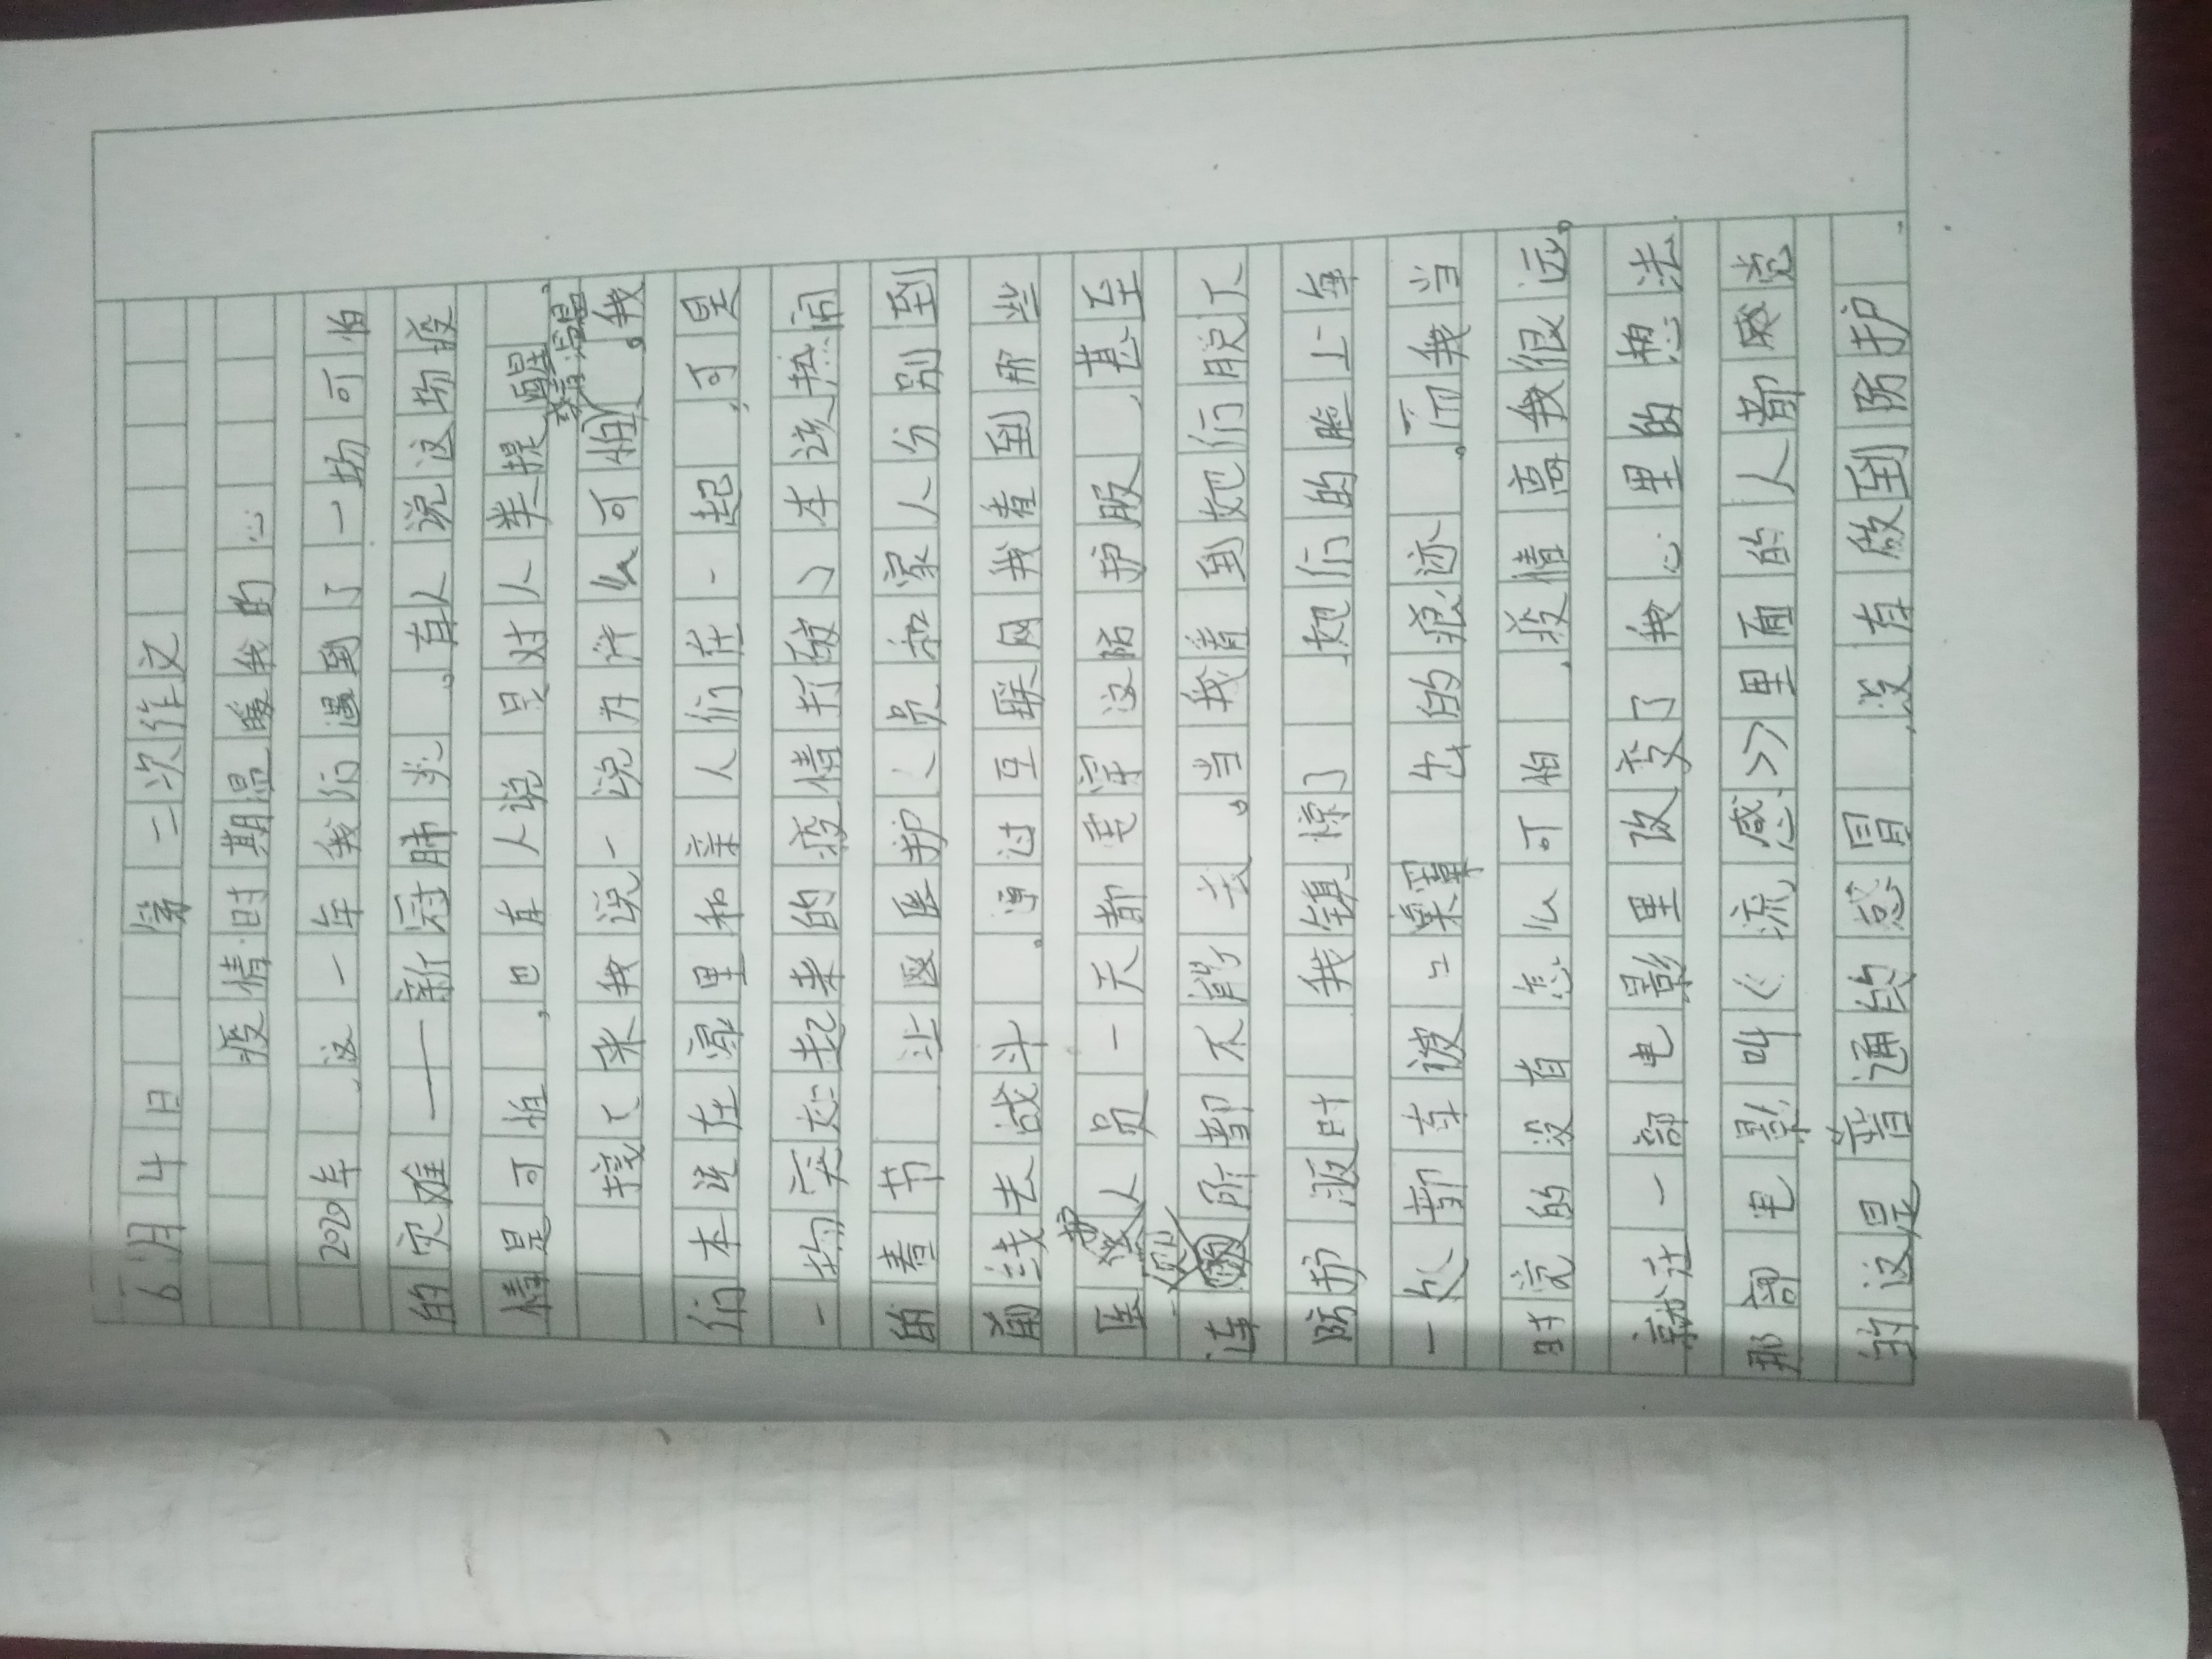 6月4日 第二次作文
疫情时期温暖我的心
2020年,这一年我们遇到了一场可怕
的灾难——新冠肺炎。有人说这场疫
情是可怕,也有人说是对人类提醒。
接下来我说一说为什么可怕或者温温。我
们本该在家里和亲人们在一起,可是
一场突如起来的疫情打破了本该热闹
的春节 让医医护人员和家人分别到
前线去战斗。通过互联网我看到那些
医护人员一天都要穿这防护服,甚至
连厕所都不肯去。当我看到她们脱下
防护服时 我镇惊了 她们的脸上每
一处都有被口罩 出的痕迹。而我当
时觉的没有怎么可怕,疫情离我很远。
就让一部电影里改变了我心里的想法
那部电影叫《流感》里面的人都感觉
的这是普通的感冒 没有做到防护